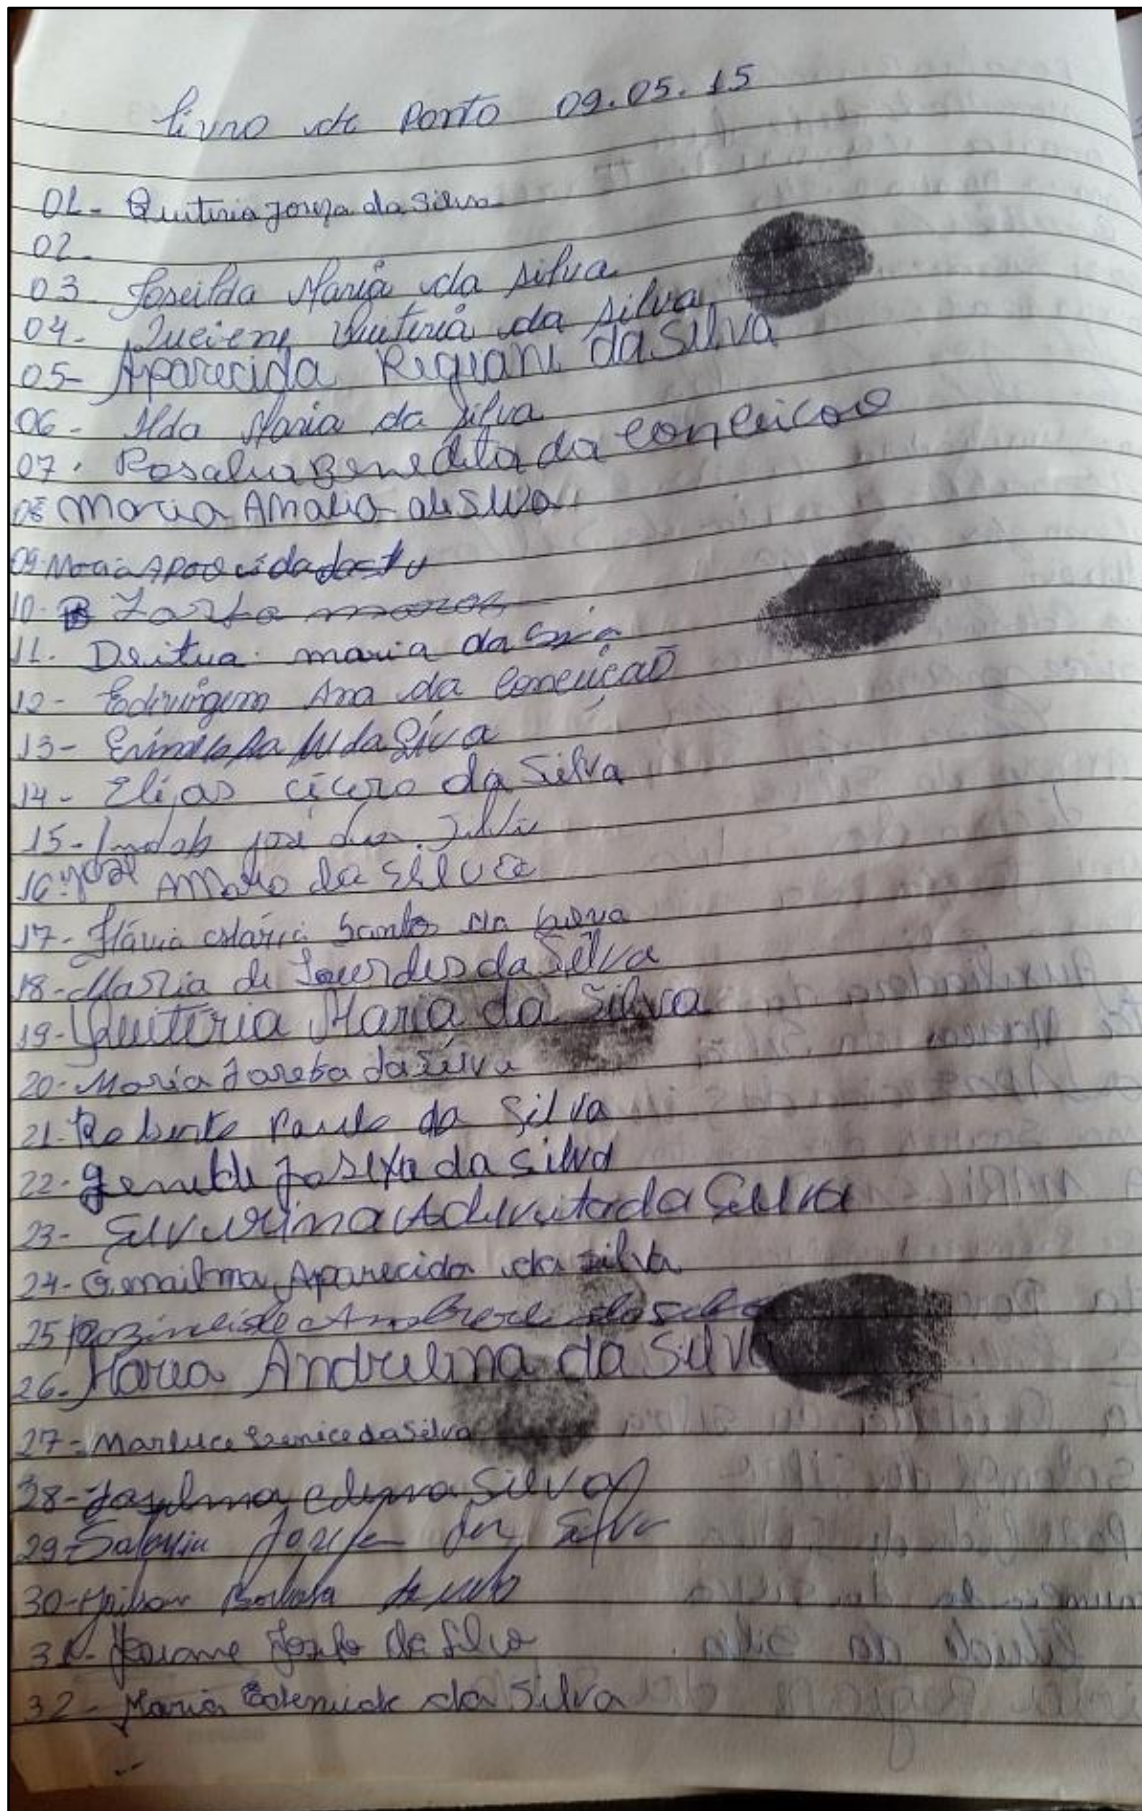 livro de Ponto 09.05.15
01- Quiteria Josefa da Silva
02-
03- Joseilda Maria da Silva
04- Luciene Quiteria da Silva
05- Aparecida Regiani da Silva
06- Ilda Maria da Silva
07- Rosalia Benedita da Conceicao
08 Maria Amalia da Silva
09 Maria Aparecida
10-
11- maria da
12- Edvirgem Ana da Conceição
13- da Silva
14- Elias cicero da Silva
15- José da Silva
16- José Amaro da Silva
17- Flávia Maria Santos da
18- Maria de Lourdes da Silva
19- Quitéria Maria da Silva
20- Maria Josefa da Silva
21- Roberto Paulo da Silva
22- Genilde Josefa da Silva
23- da Silva
24- Gmailma Aparecida da Silva
25 da Silva
26- Maria Andrelina da Silva
27- Marluce Eunice da Silva
28- Joselma Edna Silva
29- Josefa da Silva
30-
31- Josiane Josefa da Silva
32- Maria Edeneide da Silva